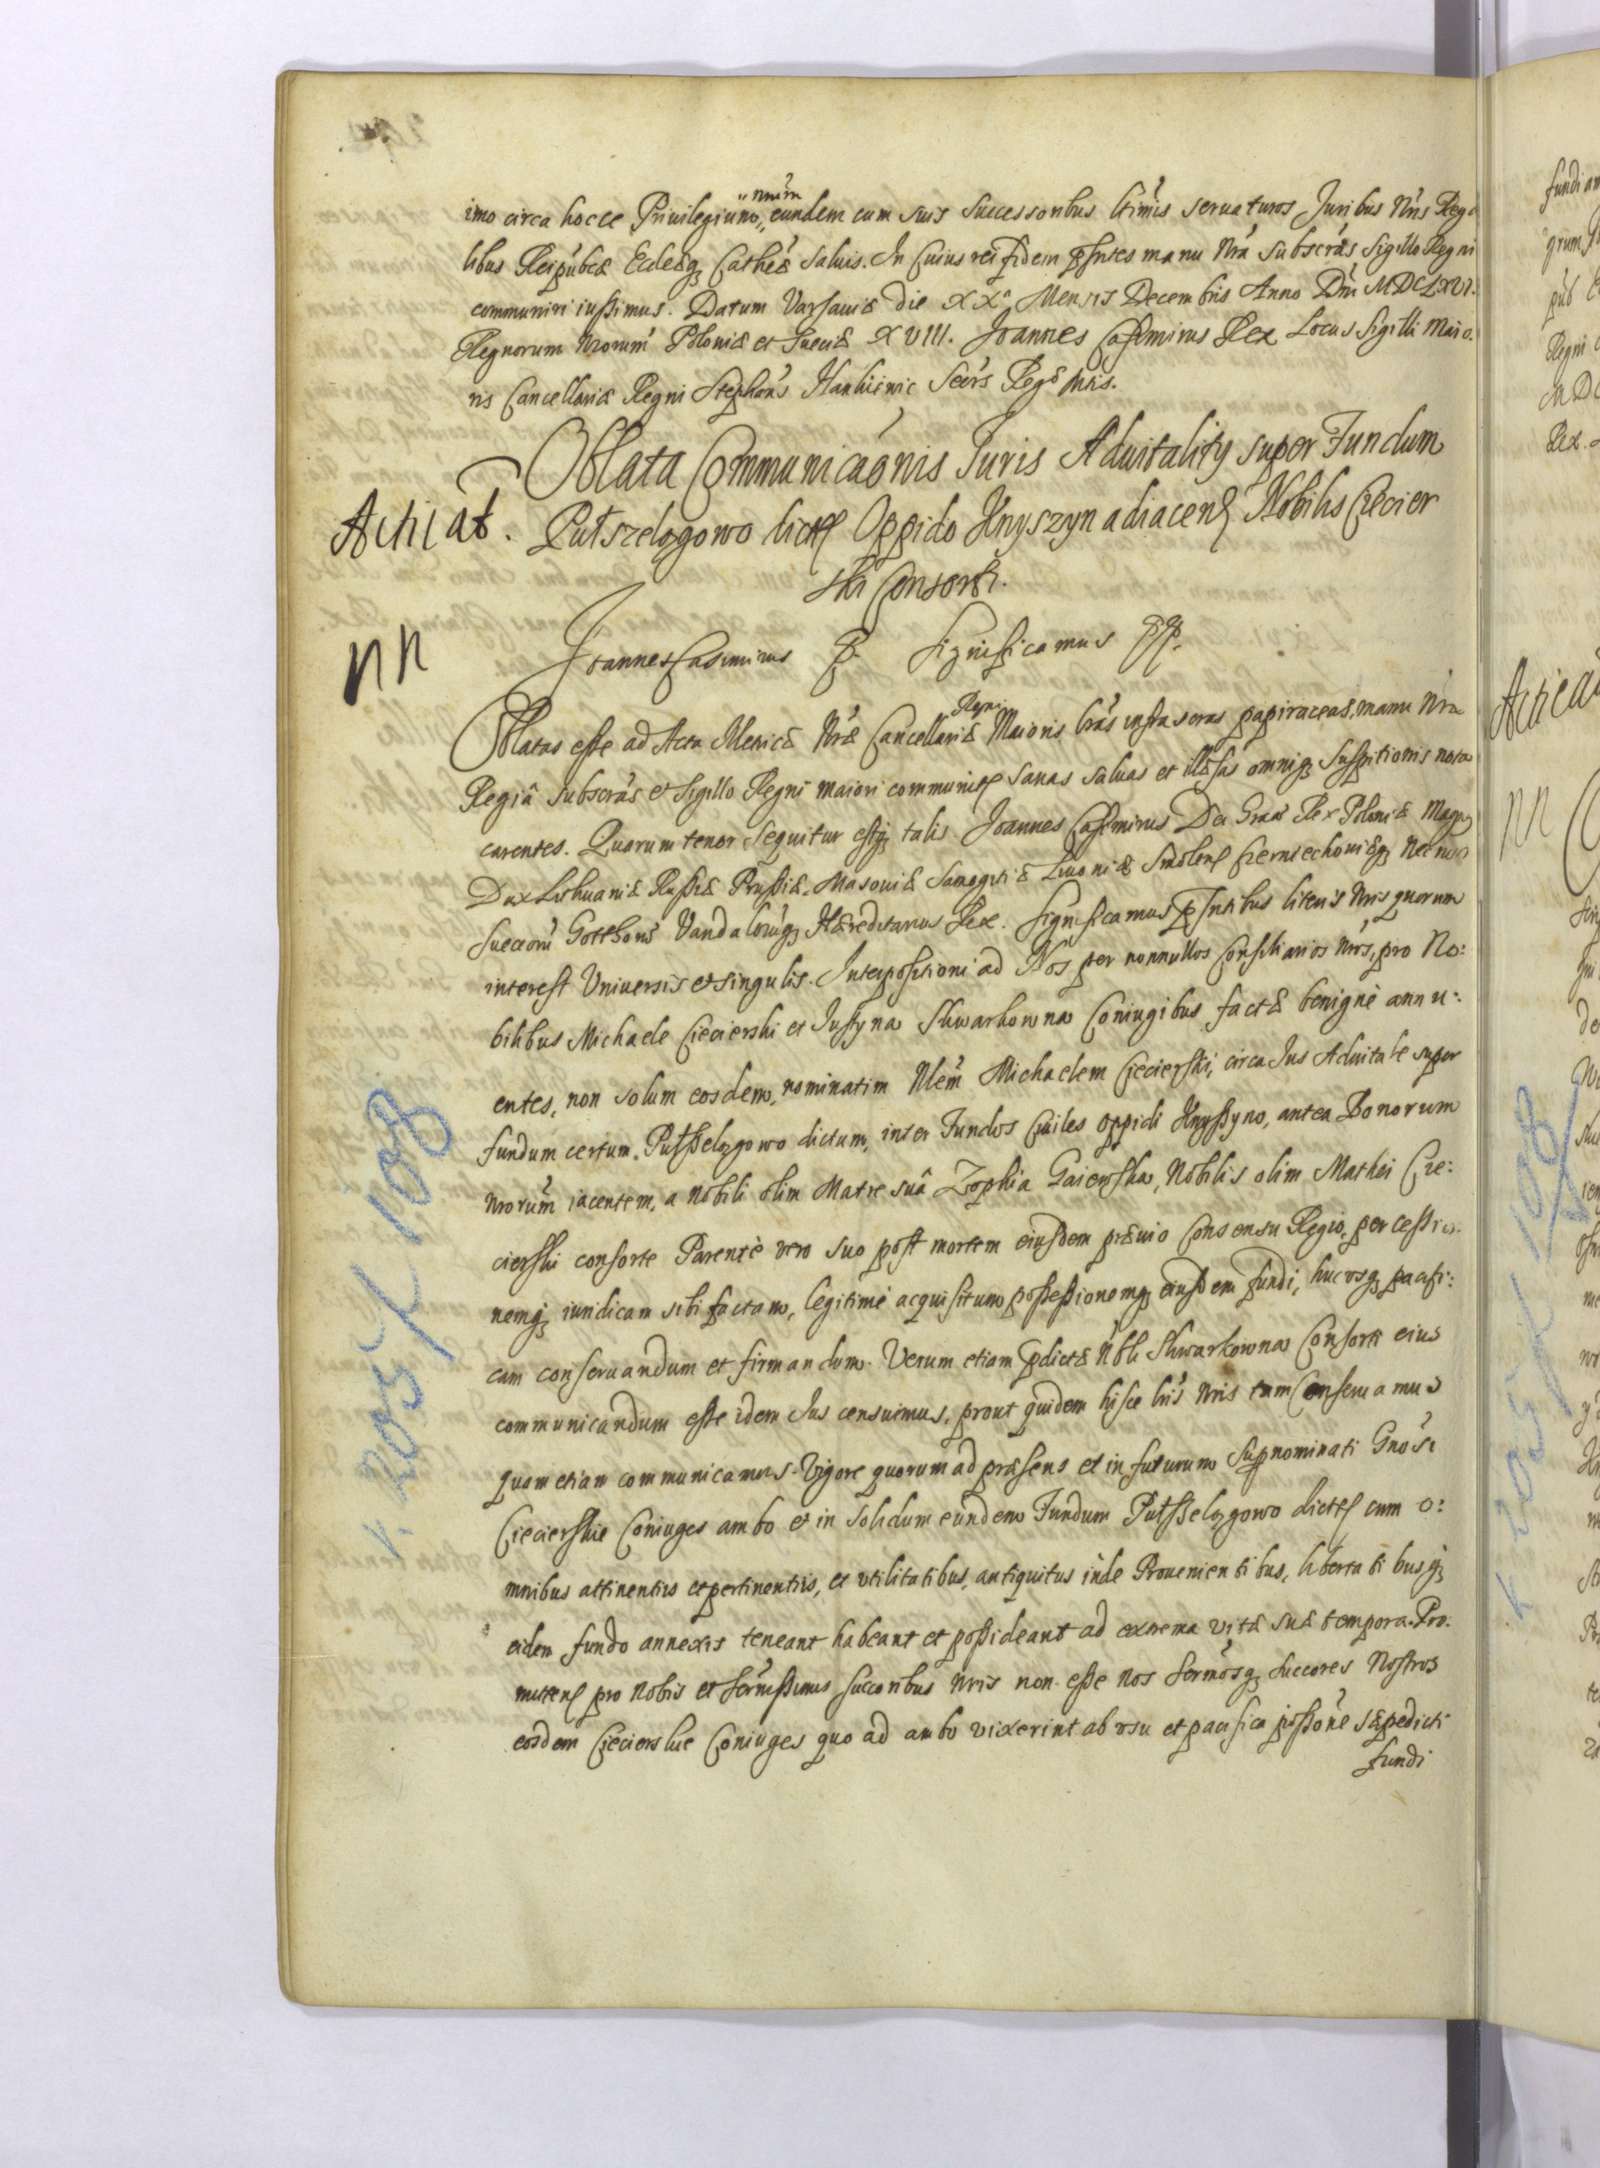 nrũm
imo circa hocce Privilegium, eundem cum suis Successoribus ltimis servaturos Juribus Nris Rega
libus Reipubcæ Eccleæq Cathcæ Salvis. In Cuius rei fidem pñtes manu Nra Subscras Sigillo Regni
communiri iussimus. Datum Varsaviæ die XXa Mensis Decembris Anno Dni MDCLXVI.
Regnorum Nrorum Poloniæ et Sueciæ XVIII. Joannes Casimirus Rex Locus Sigilli Maio.
ris Cancellariæ Regni Stephans Hankiewic Secrs Regæ Mtis.
Oblata Communicaonis Juris Advitalitis super Fundum
Acticat. Putszelągowo dict Oppido Knyszyn adiacen Nobilis Ciecier
ski Consorti.
NN
Joannes Casimirus P. Significamus pp.
Regni
Oblatas esse ad Acta Metricæ Nræ Cancellariæ Maioris lras infrascras papiraceas, manu Nra
Regiâ subscras et Sigillo Regni maiori communit sanas salvas et illæsas omniq suspitionis nota
carentes. Quorum tenor sequitur estq talis. Joannes Casimirus Dei Graa Rex Poloniæ Magnq
Dux Lithuaniæ Russiæ Prussiæ, Masoviæ Samogitiæ Livoniæ Smolen Czerniechoviæq Nec non
Suecorũ Gotthorũ Vandalorũq Hæreditarius Rex. Significamus pntibus literis Nris quorum
interest Universis et singulis. Interpositioni ad Nos per nonnullos Consiliarios Nros, pro No:
bilibus Michaele Cieciershi et Justyna Skwarkowna Coniugibus factæ benignè annu:
entes, non solum eosdem, nominatim Nlem Michaelem Cieciershi, circa Jus Advitale super
fundum certum. Putsselągowo dictum, inter Fundos Civiles oppidi Knyssyno, antea Bonorum
Nrorum iacentem, a Nobili olim Matre suâ Zophia Gaiewska, Nobilis olim Mathei Cie:
cierski consorte Parente vero suo post mortem eiusdem prævio Consensu Regio, per cessio:
nemq iuridicam sibi factam, legitime acquisitum possessionemq eiusdem fundi, hucusq pacifi:
cam conservandum et firmandum. Verum etiam pdictæ Nbli Skwarkowna Consorti eius
communicandum esse idem Jus censuimus, prout quidem hisce lris Nris tum Conservamus
quam etiam communicamus. Vigore quorum ad præsens et in futurum Supnominati Gnosi
Ciecierskie Coniuges ambo et in solidum eundem Fundum Putsselągowo dict cum o:
mnibus attinentiis et pertinentiis, et utilitatibus, antiquitus inde Provenientibus, libertatibusq
eidem fundo annexis teneant habeant et possideant ad extrema vitæ suæ tempora. Pro:
mitten pro Nobis et Sernissimis Succoribus Nris non esse Nos Sermosq Succores Nostros
eosdem Ciecierskie Coniuges quo ad ambo vixerint ab usu et pacifica possone sæpedicti
fundi
k. 205 / 108